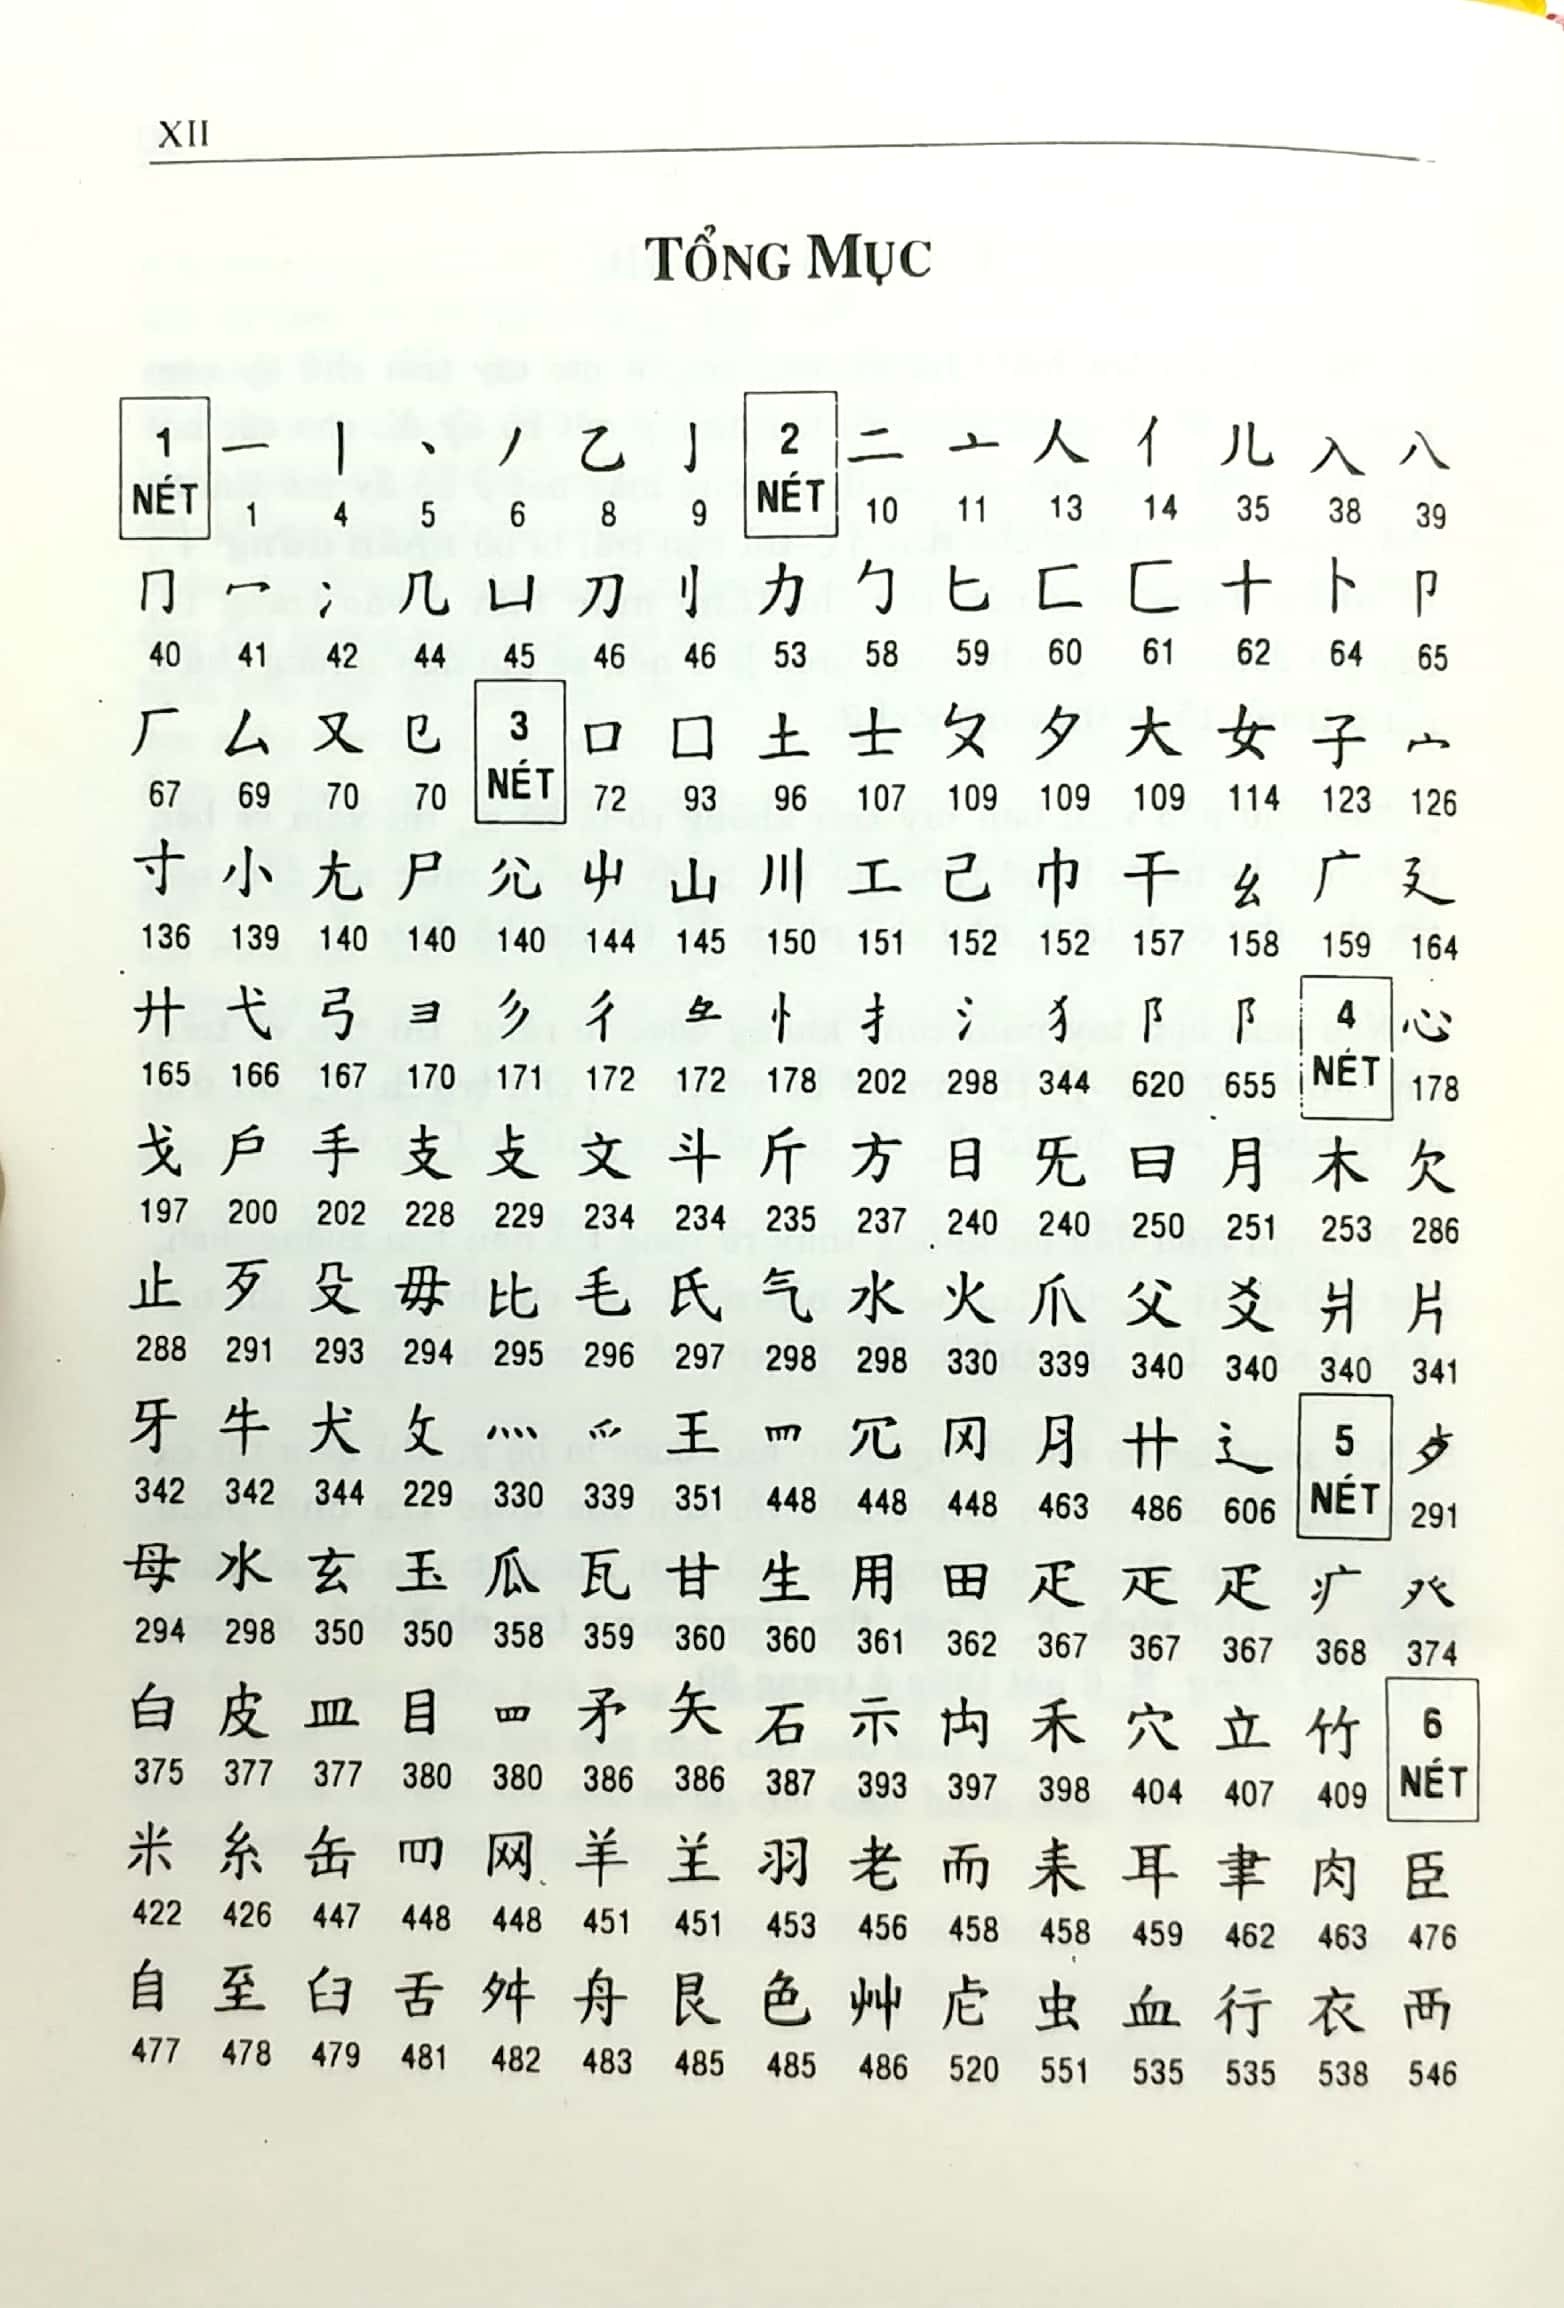 XII
TỔNG MỤC
1 NÉT 一 丨 丶 丿 乙 亅 2 NÉT 二 亠 人 亻 儿 入 八
1 4 5 6 8 9 10 11 13 14 35 38 39
冂 冖 冫 几 凵 刀 刂 力 勹 匕 匚 匸 十 卜 卩
40 41 42 44 45 46 46 53 58 59 60 61 62 64 65
厂 厶 又 㔾 3 NÉT 口 囗 土 士 夂 夕 大 女 子 宀
67 69 70 70 72 93 96 107 109 109 109 114 123 126
寸 小 尢 尸 尣 屮 山 川 工 己 巾 干 幺 广 廴
136 139 140 140 140 144 145 150 151 152 152 157 158 159 164
廾 弋 弓 彐 彡 彳 彑 忄 扌 氵 犭 阝 阝 4 NÉT 心
165 166 167 170 171 172 172 178 202 298 344 620 655 178
戈 戶 手 支 攴 文 斗 斤 方 日 旡 曰 月 木 欠
197 200 202 228 229 234 234 235 237 240 240 250 251 253 286
止 歹 殳 毋 比 毛 氏 气 水 火 爪 父 爻 爿 片
288 291 293 294 295 296 297 298 298 330 339 340 340 340 341
牙 牛 犬 攵 灬 爫 王 罒 冗 冈 月 卄 辶 5 NÉT 歺
342 342 344 229 330 339 351 448 448 448 463 486 606 291
母 氺 玄 玉 瓜 瓦 甘 生 用 田 疋 疋 疋 疒 癶
294 298 350 350 358 359 360 360 361 362 367 367 367 368 374
白 皮 皿 目 罒 矛 矢 石 示 禸 禾 穴 立 竹 6 NÉT
375 377 377 380 380 386 386 387 393 397 398 404 407 409
米 糸 缶 罒 网 羊 𦍌 羽 老 而 耒 耳 聿 肉 臣
422 426 447 448 448 451 451 453 456 458 458 459 462 463 476
自 至 臼 舌 舛 舟 艮 色 艸 虍 虫 血 行 衣 襾
477 478 479 481 482 483 485 485 486 520 551 535 535 538 546